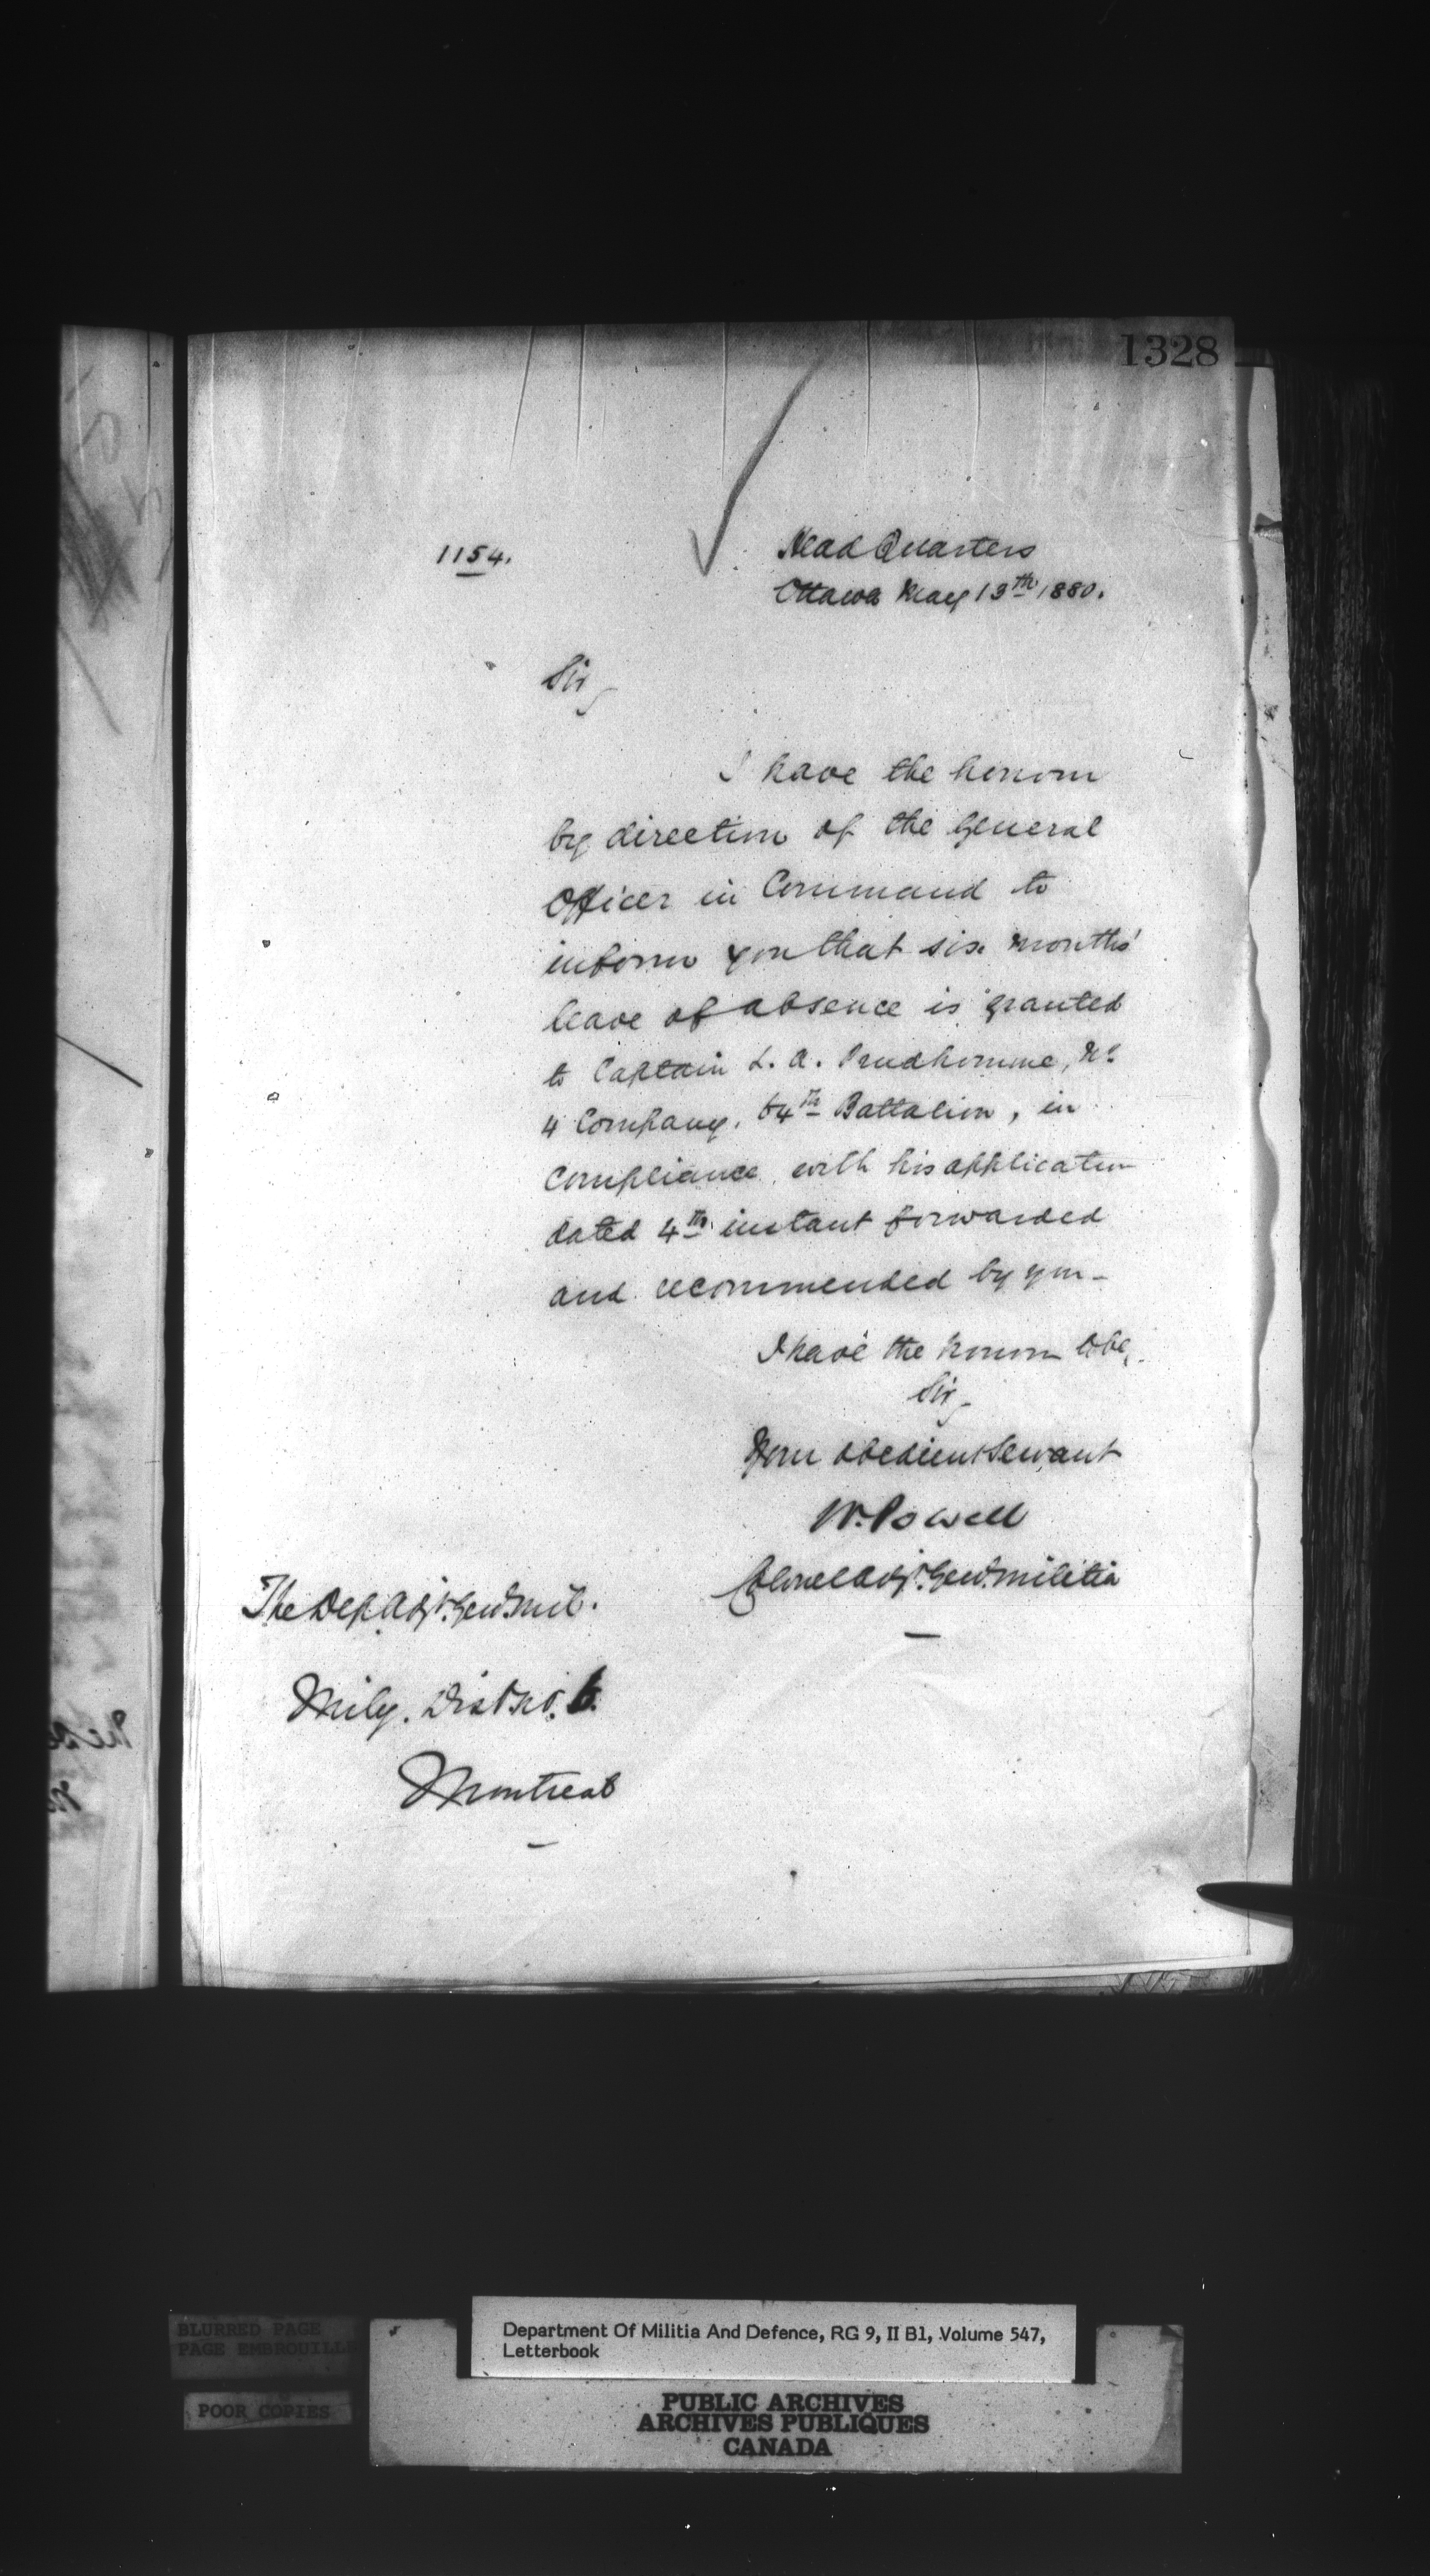 1328
1154.
Head Quarters
Ottawa May 13th 1880.
Sir,
I have the honour
by direction of the General
Officer in Command to
inform you that six months'
leave of absence is granted
to Captain L. A. Prudhomme, No
4 Company, 64th Battalion, in
compliance with his application
dated 4th instant forwarded
and recommended by you -
I have the honour to be,
Sir,
Your obedient Servant
W. Powell
Colonel Adjt. Genl. Militia
The Dep Adjt. Genl. Mil.
Mily. Dist No. 6.
Montreal
BLURRED PAGE
PAGE EMBROUILL
POOR COPIES
Department Of Militia And Defence, RG 9, II B1, Volume 547,
Letterbook
PUBLIC ARCHIVES
ARCHIVES PUBLIQUES
CANADA